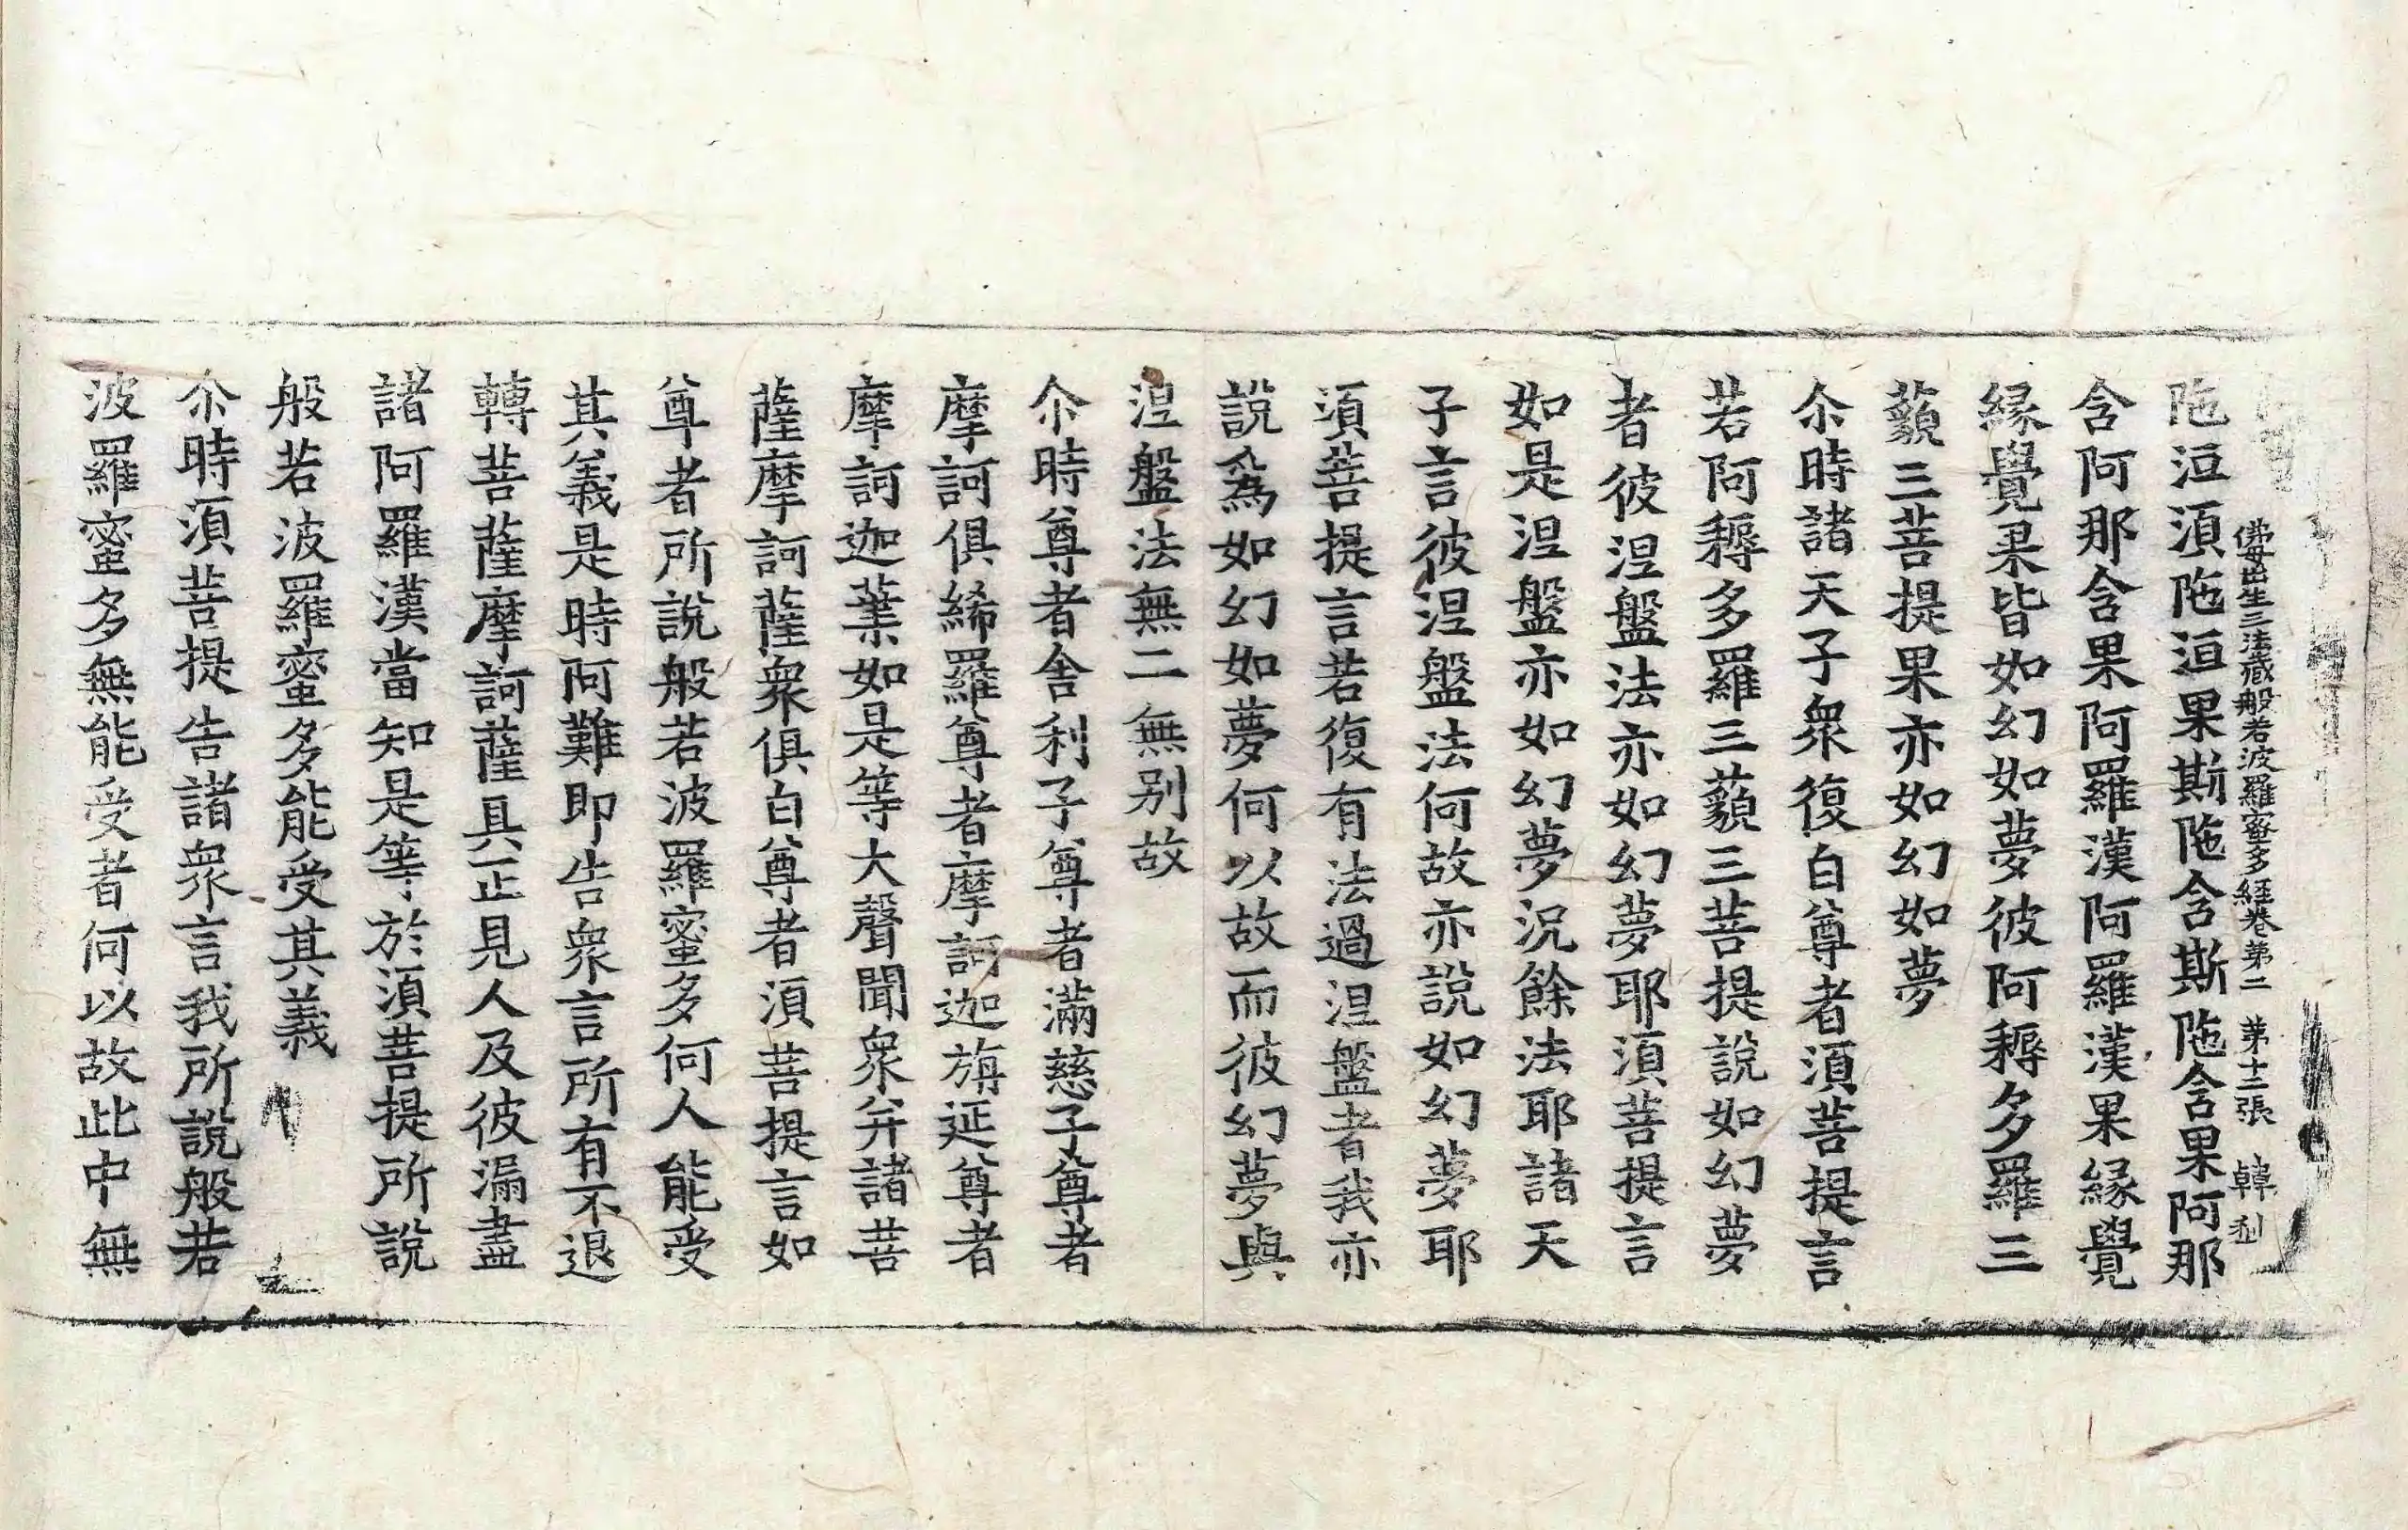 佛母出生三法藏般若波羅蜜多經卷第二 第十二張 韓
陁洹湏陁洹果斯陁含斯陁含果阿那
含阿那含果阿羅漢阿羅漢果緣覺
緣覺果皆如幻如夢彼阿耨多羅三
藐三菩提果亦如幻如夢
尒時諸天子衆復白尊者湏菩提言
若阿耨多羅三藐三菩提說如幻夢
者彼涅盤法亦如幻夢耶湏菩提言
如是涅盤亦如幻夢況餘法耶諸天
子言彼涅盤法何故亦說如幻夢耶
湏菩提言若復有法過涅盤者我亦
說為如幻如夢何以故而彼幻夢與
涅盤法無二無别故
尒時尊者舍利子尊者滿慈子尊者
摩訶俱絺羅尊者摩訶迦旃延尊者
摩訶迦葉如是等大聲聞衆并諸菩
薩摩訶薩衆俱白尊者湏菩提言如
尊者所說般若波羅蜜多何人能受
其義是時阿難即告衆言所有不退
轉菩薩摩訶薩具正見人及彼漏盡
諸阿羅漢當知是等於湏菩提所說
般若波羅蜜多能受其義
尒時湏菩提告諸衆言我所說般若
波羅蜜多無能受者何以故此中無